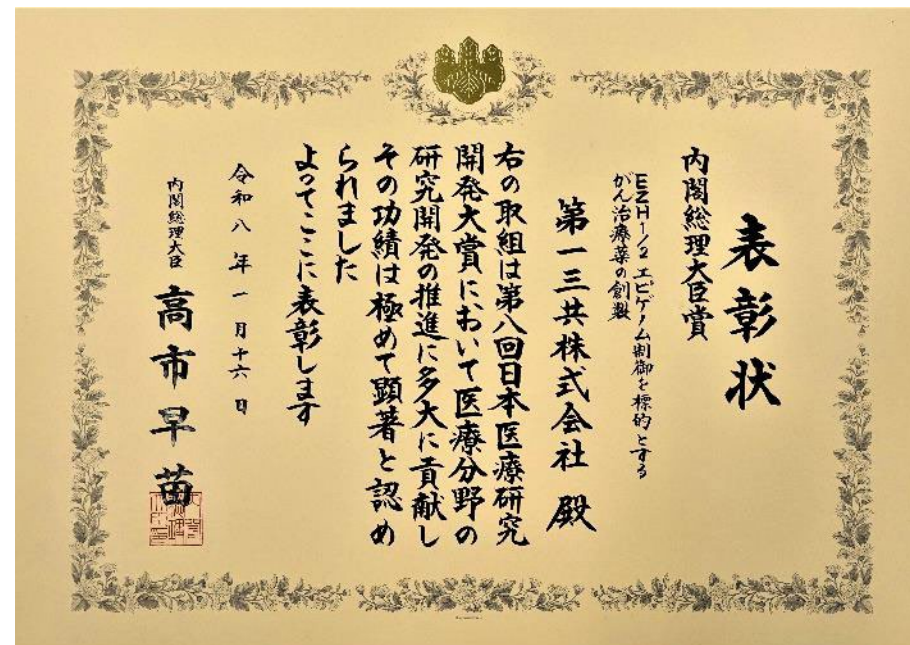 表彰状
内閣総理大臣賞
EZH1/2 エピゲノム制御を標的とする
がん治療薬の創製
第一三共株式会社 殿
右の取組は第八回日本医療研究
開発大賞において医療分野の
研究開発の推進に多大に貢献し
その功績は極めて顕著と認め
られました
よってここに表彰します
令和八年一月十六日
内閣総理大臣 高市早苗